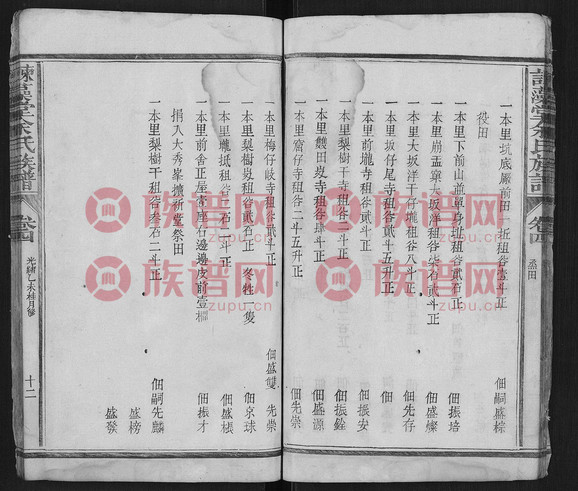 一本里坑底厰前田一坵租谷壹斗正 佃嗣盛棕
役田
一本里下前山並單身坵租谷貮石正 佃振培
一本里崩盂寧大坂洋租谷柒石貮斗正 佃盛燦
一本里大坂洋干仔壠租谷八斗正 佃先存
一本里坂仔尾寺租谷貮斗五升正 佃
一本里前壠寺租谷貮斗正 佃振安
一本里梨樹干寺租谷二斗正 佃振銓
一本里 田 寺租谷肆斗正 佃盛源
一本里 仔寺租谷二斗五升正 佃先崇
一本里梅仔岐寺租谷貮斗正 佃盛雙 先崇
一本里梨樹 租谷貮石正 冬牲一隻 佃京球
一本里壠坻租谷二石二斗正 佃盛
一本里前舍正屋壹座石邊邊皮前壹櫊 佃振才
捐入大秀峯擴祈堂祭田
一本里梨樹干租谷叁石二斗正 佃嗣先麟
盛榜
盛發
余氏族譜
卷四
烝田
余氏族譜
卷四
光緒乙未桂月修
十二
族谱网
族谱网
族谱网
族谱网
族谱网
族谱网